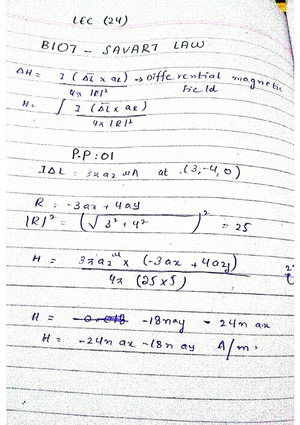 LEC (24)
BIOT - SAVART LAW
ΔH = I (ΔL x aR) / 4π |R|² → Differential magnetic Field
H = ∫ I (ΔL x aR) / 4π |R|²
P.P : 01
IΔL = 3π az uA at (3, -4, 0)
R = -3ax + 4ay
|R|² = (√3² + 4²)² = 25
H = 3π az u x (-3ax + 4ay) / 4π (25 x 5)
H = -0.018 -18n ay - 24n ax
H = -24n ax - 18n ay A/m.